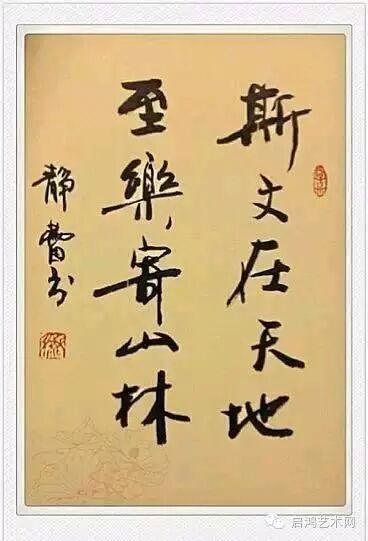 斯文在天地
至樂寄山林
静
书
启鸿艺术网